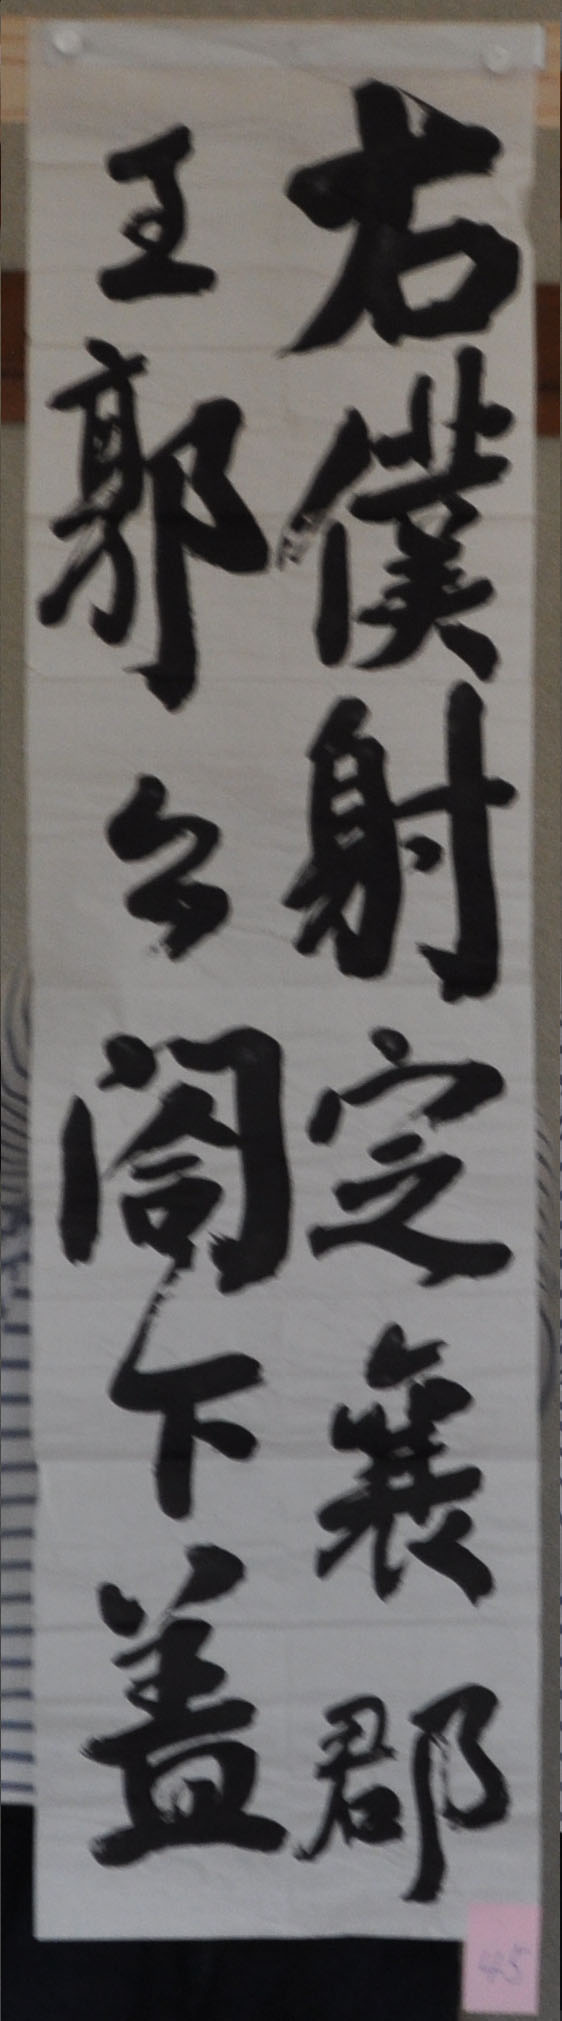 右僕射定襄郡
王郭公閤下蓋
45